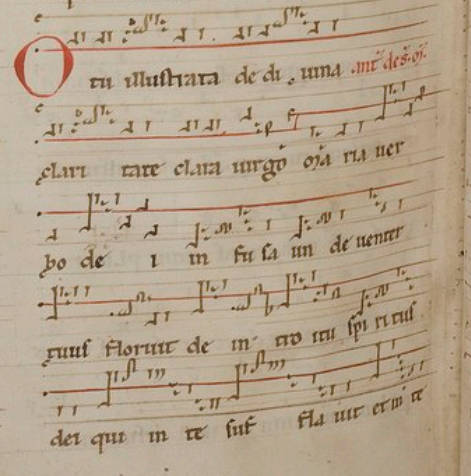 O tu illustrata de di uina ant̄ de s. m̄.
clari tate clara uirgo ma ria uer
bo de i in fu sa un de uenter
tuus floruit de in tro itu spi ritus
dei qui in te suf fla uit et in te